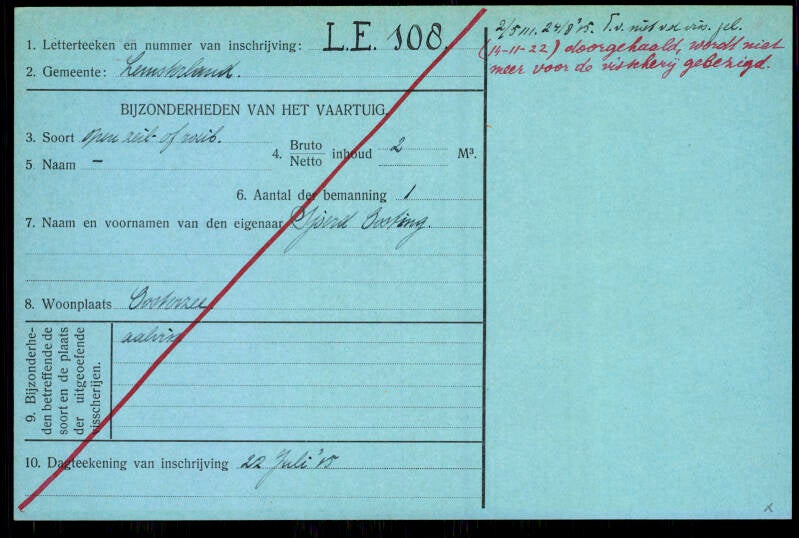 1. Letterteeken en nummer van inschrijving: L.E. 108.
2. Gemeente: Lemsterland.
BIJZONDERHEDEN VAN HET VAARTUIG.
3. Soort open zeil- of roeib.
4. Bruto Netto inhoud 2 M³.
5 Naam —
6. Aantal der bemanning 1
7. Naam en voornamen van den eigenaar Sjoerd Oosting.
8. Woonplaats Oosterzee
9. Bijzonderhe-
den betreffende de
soort en de plaats
der uitgeoefende
visscherijen.
aalvissch
10. Dagteekening van inschrijving 22 Juli '15
24/8 '15. T.v. niet v.d. vis.
(14-11-22) doorgehaald, wordt niet
meer voor de visscherij gebezigd.